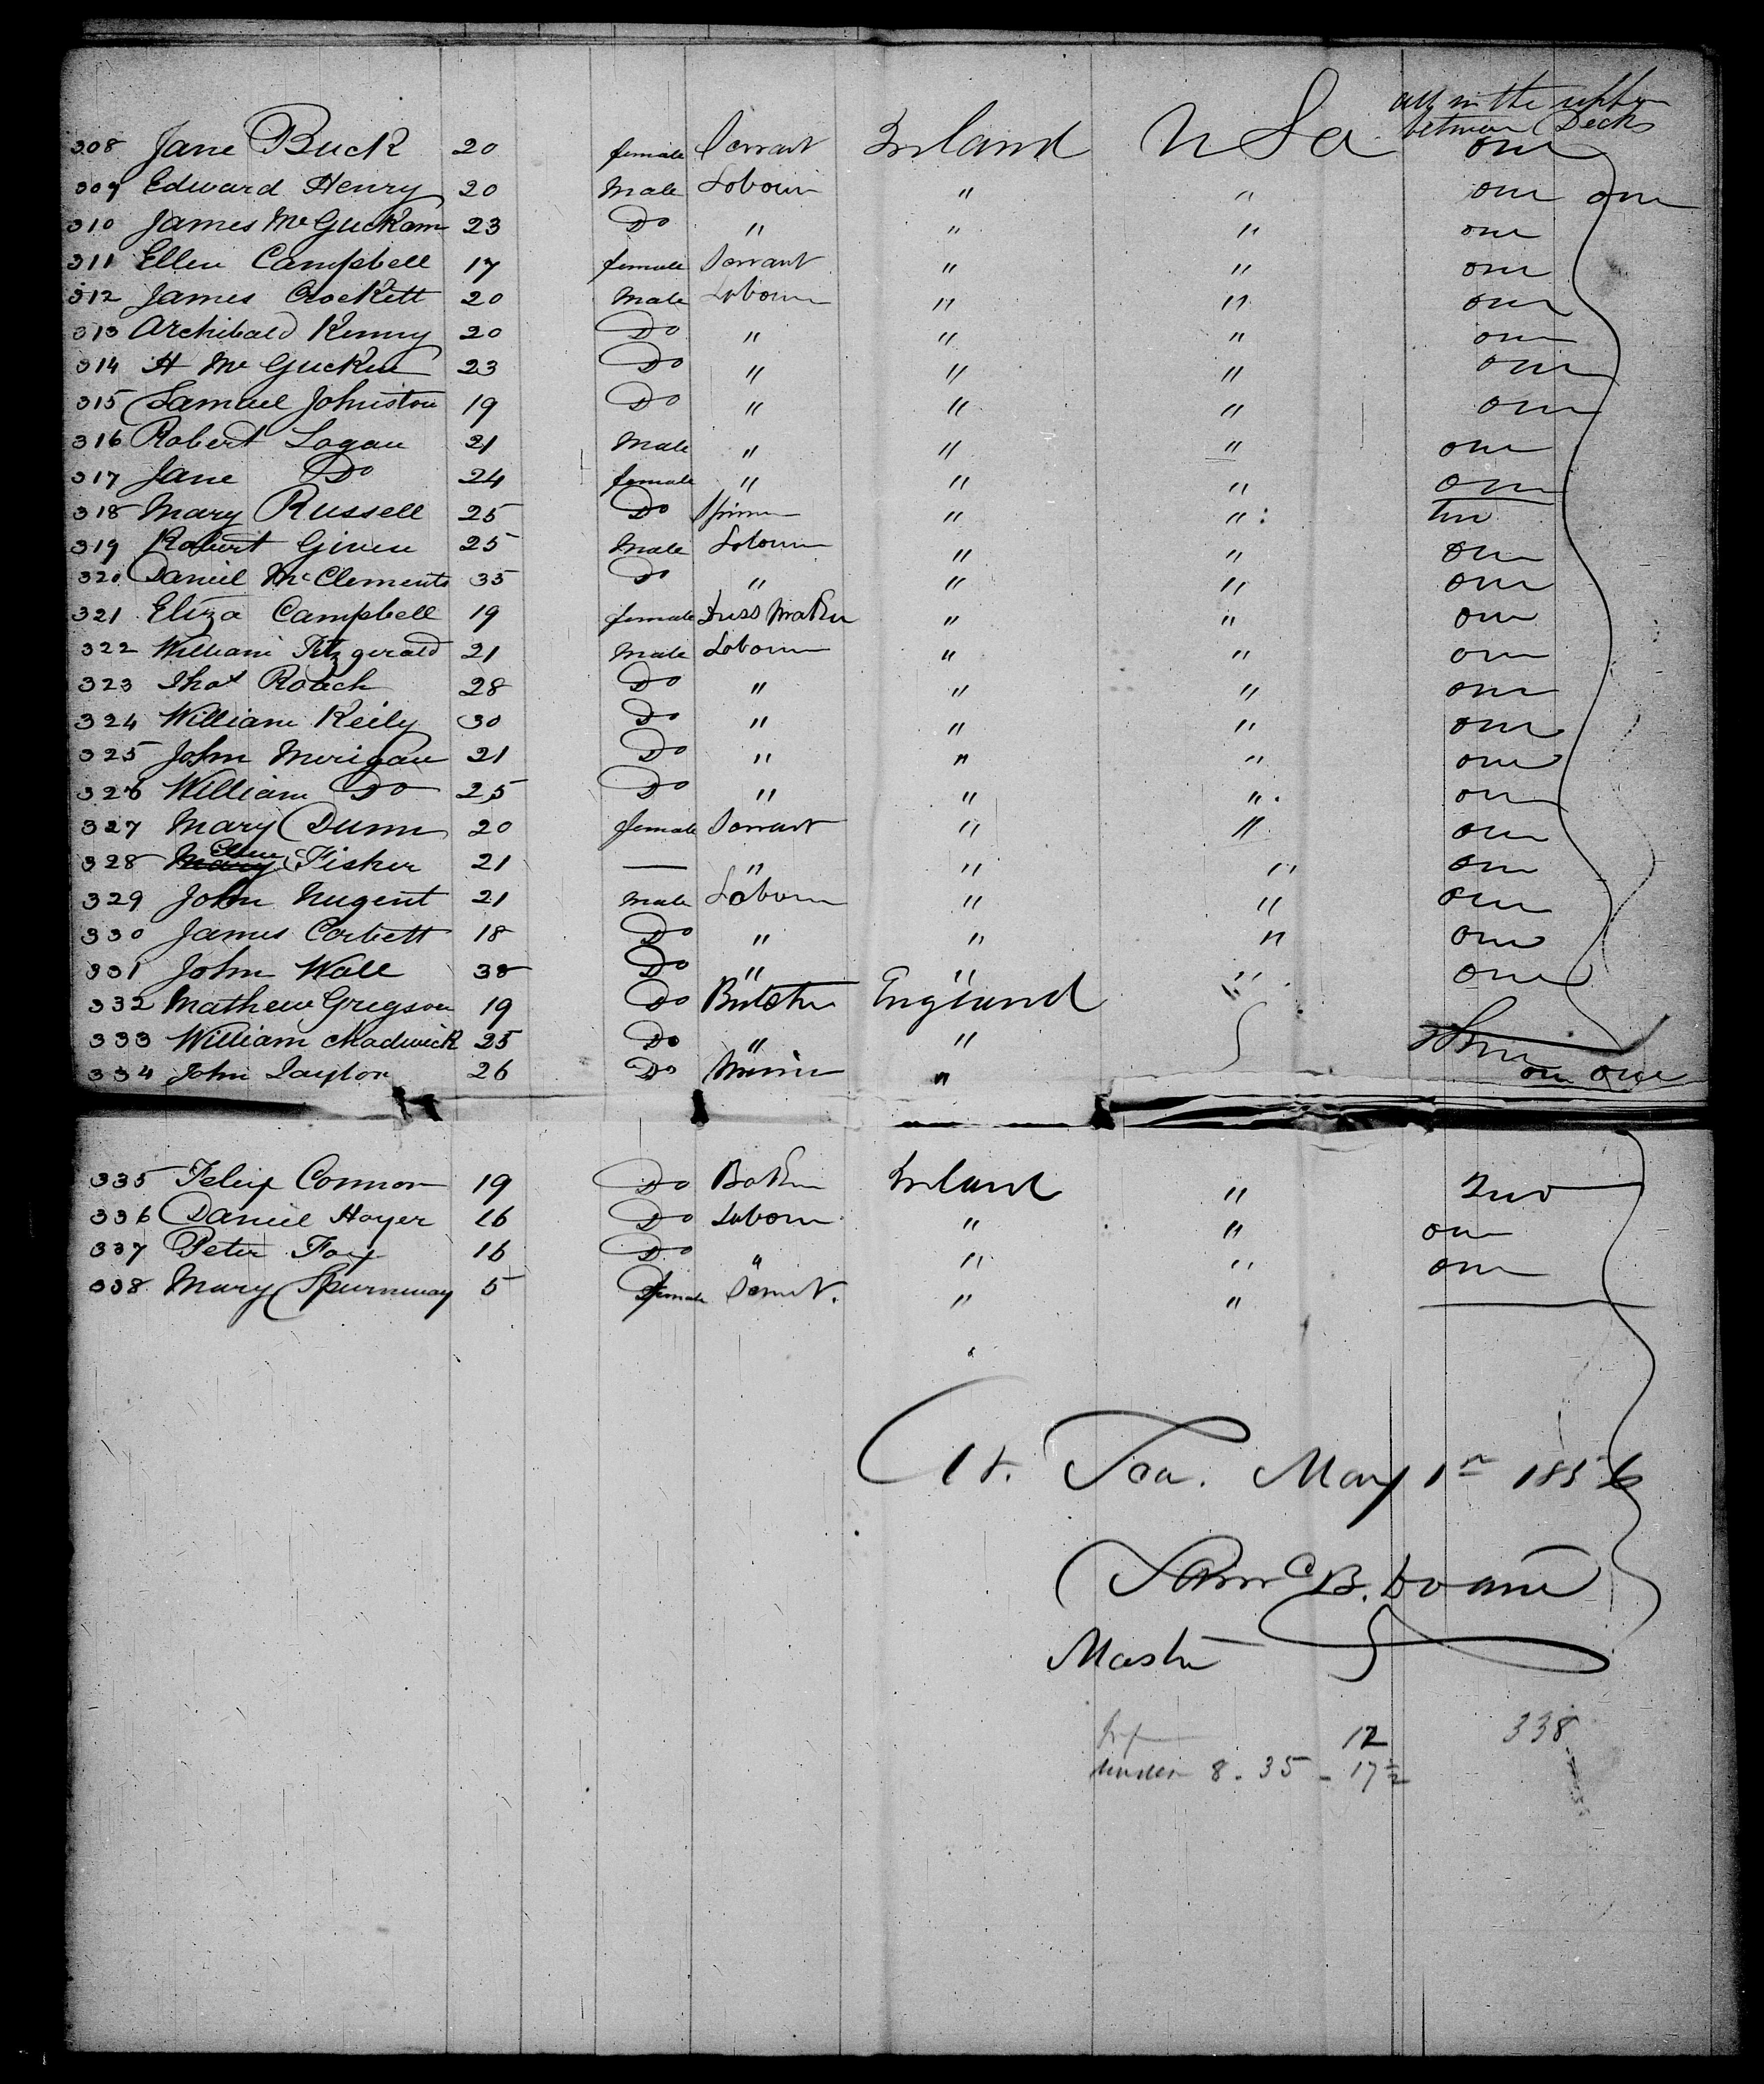 all in the upper
between Decks
308 Jane Buck 20 female Servant Ireland U Sa one
309 Edward Henry 20 Male Labourer " " one one
310 James McGuckam 23 Do " " " one
311 Ellen Campbell 17 female Servant " " one
312 James Crockett 20 Male Labourer " " one
313 Archibald Kenny 20 Do " " " one
314 H McGucken 23 Do " " " one
315 Samuel Johnston 19 Do " " " one
316 Robert Logan 21 Male " " " one
317 Jane Do 24 female " " " one
318 Mary Russell 25 Do Spinner " "
319 Robert Given 25 Male Labourer " " one
320 Daniel McClements 35 Do " " " one
321 Eliza Campbell 19 female Dress Maker " " one
322 William Fitzgerald 21 Male Labourer " " one
323 Thos Roach 28 Do " " " one
324 William Keily 30 Do " " " one
325 John Merigan 21 Do " " " one
326 William Do 25 Do " " " one
327 Mary Dunn 20 female Servant " " one
328 Mary Ellen Fisher 21 — " " " one
329 John Nugent 21 Male Labourer " " one
330 James Corbett 18 Do " " " one
331 John Wall 38 Do " " " one
332 Mathew Gregson 19 Do Butcher England
333 William Chadwick 25 Do " "
334 John Taylor 26 Do " one one
335 Felix Connor 19 Do Baker Ireland "
336 Daniel Hoyer 16 Do Labourer " " one
337 Peter Foy 16 Do " " " one
338 Mary Spurnway 5 female Servt. " "
At Sea. May 1st 1856
B. Doane
Master
12 338
under 8 . 35 - 17 1/2